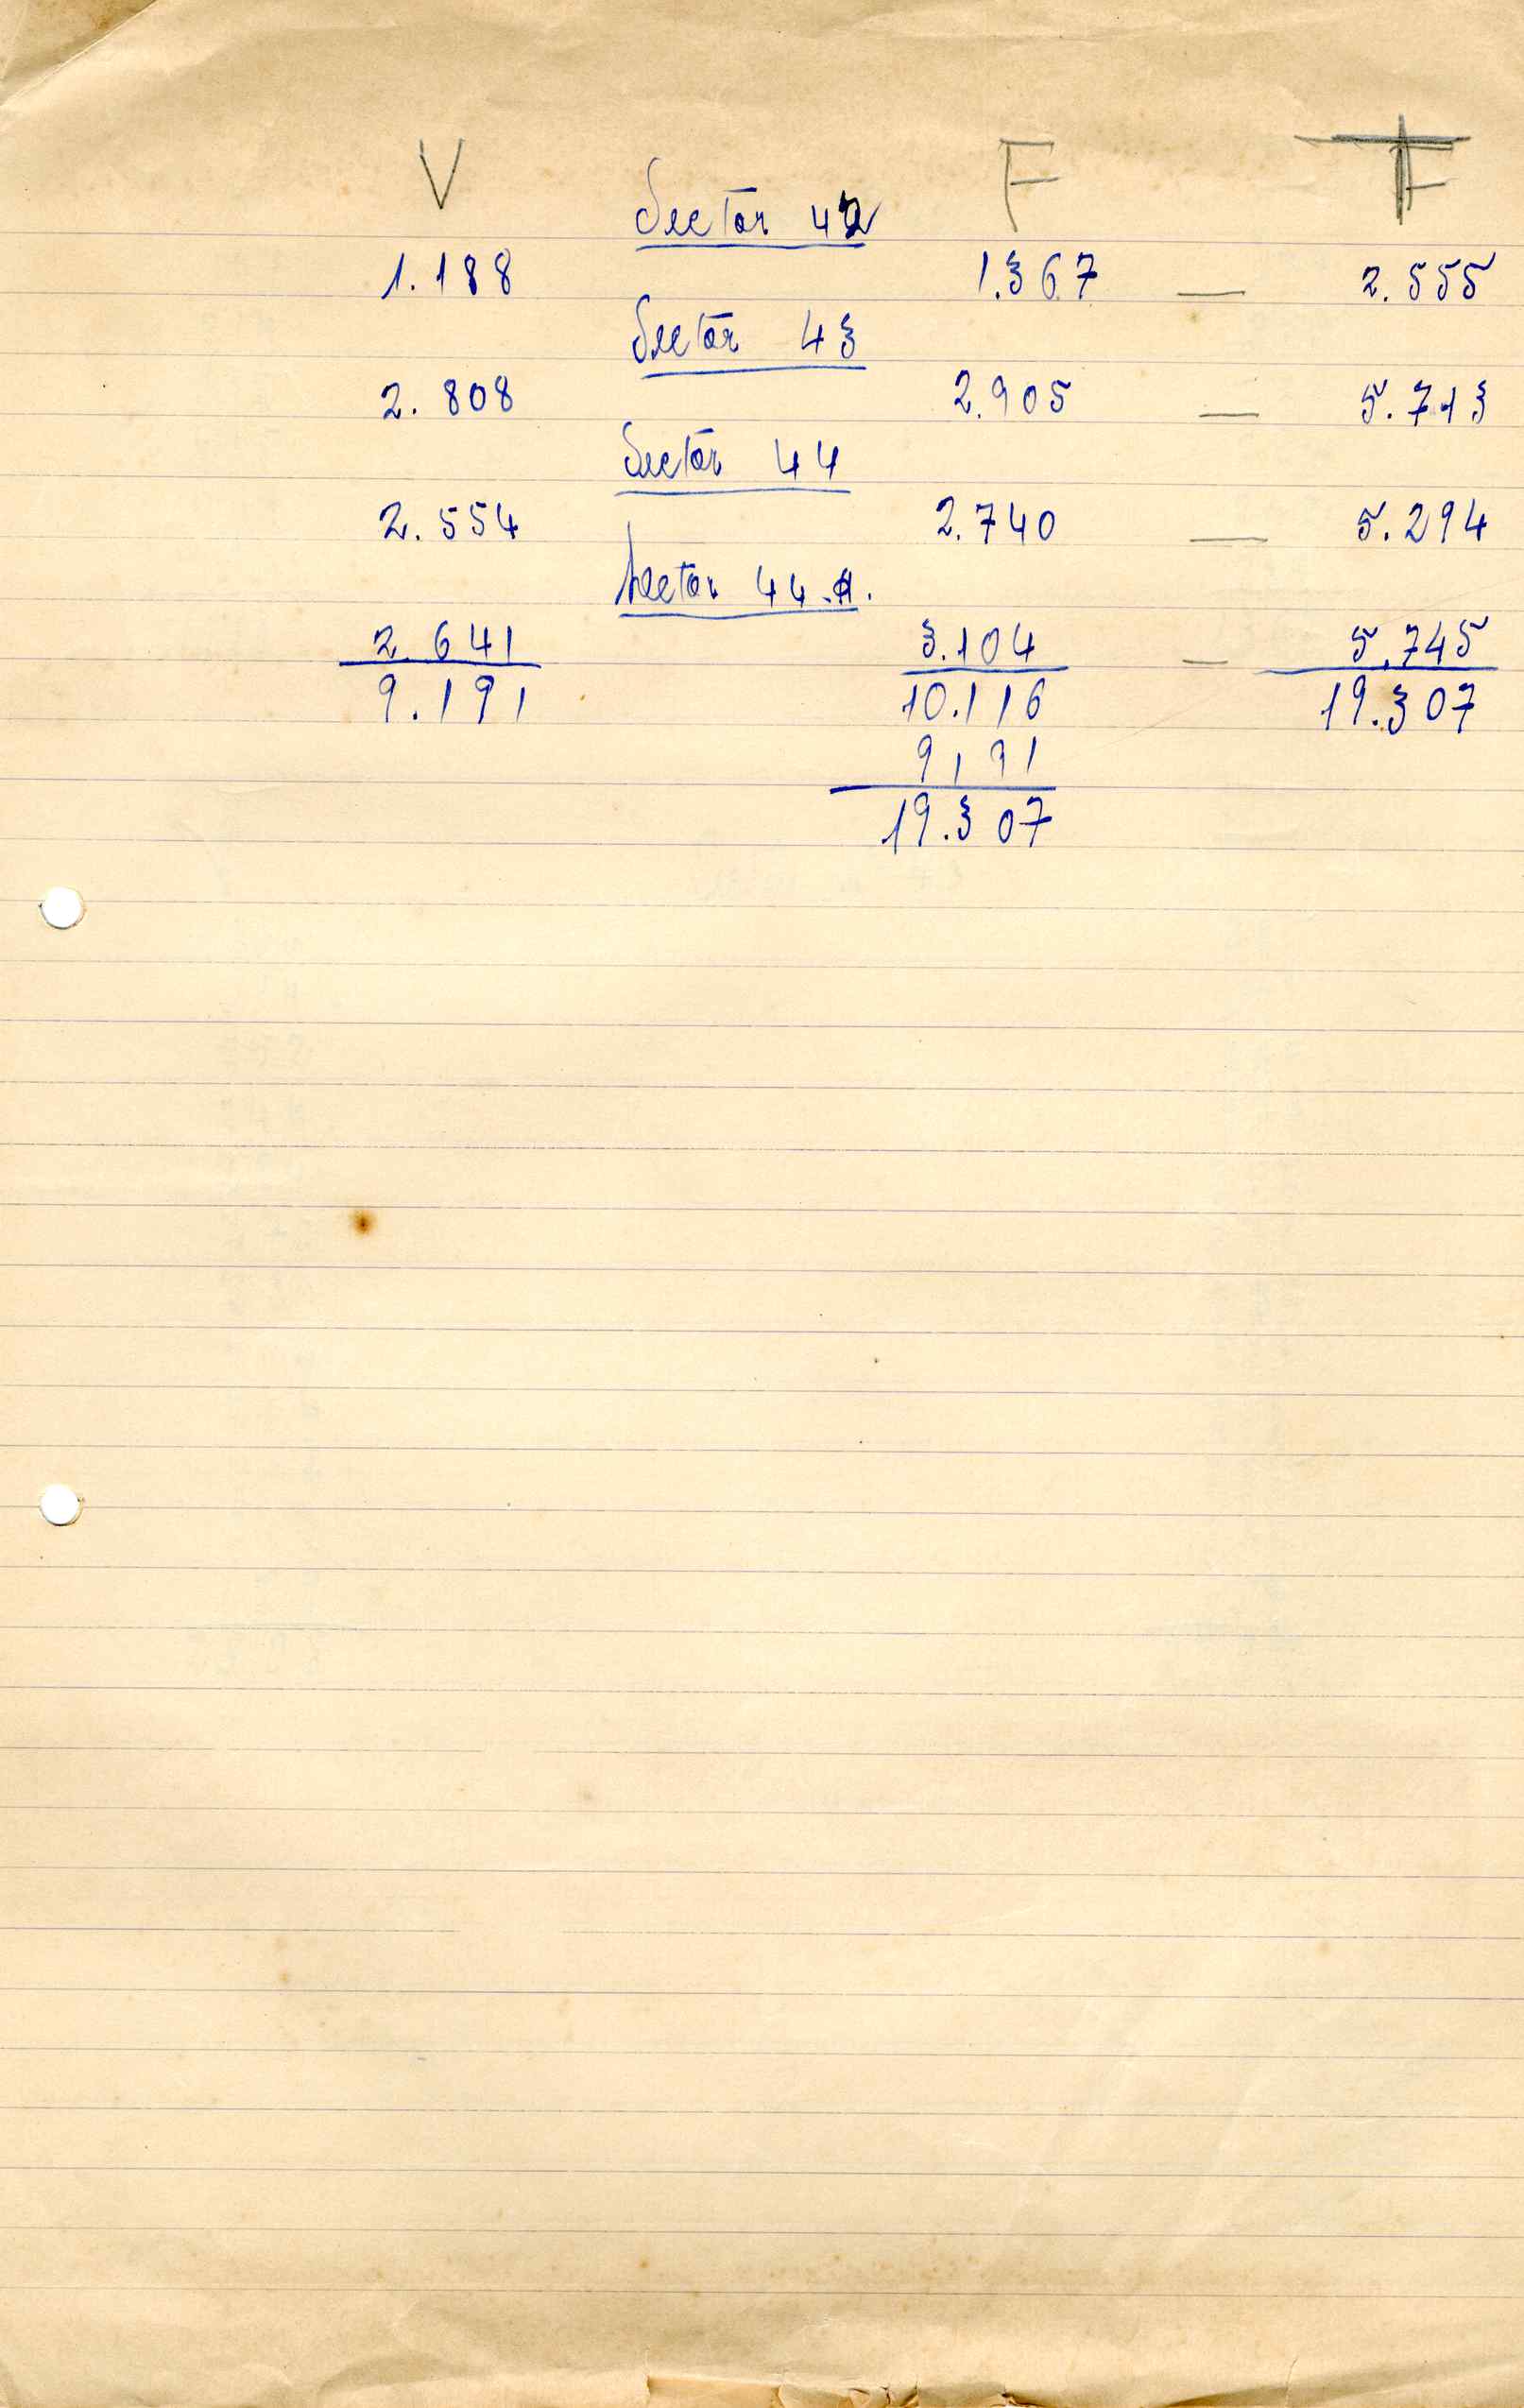 V F T
Sector 42
1.188 1.367 — 2.555
Sector 43
2.808 2.905 — 5.713
Sector 44
2.554 2.740 — 5.294
Sector 44.A.
2.641 3.104 — 5.745
9.191 10.116 19.307
9191
19.307